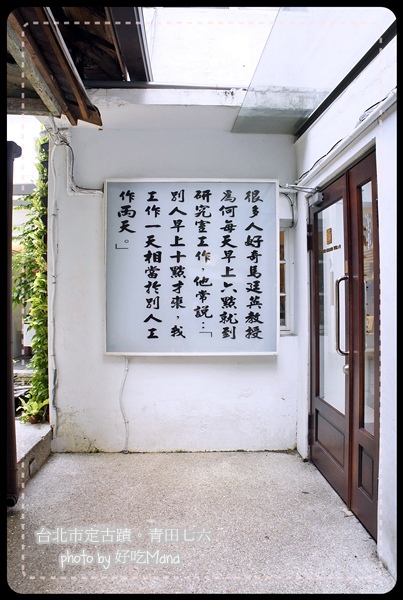 很多人好奇馬廷英教授
為何每天早上六點就到
研究室工作，他常說：「
別人早上十點才來，我
工作一天相當於別人工
作兩天。」
台北市定古蹟。青田七六
photo by 好吃Mana